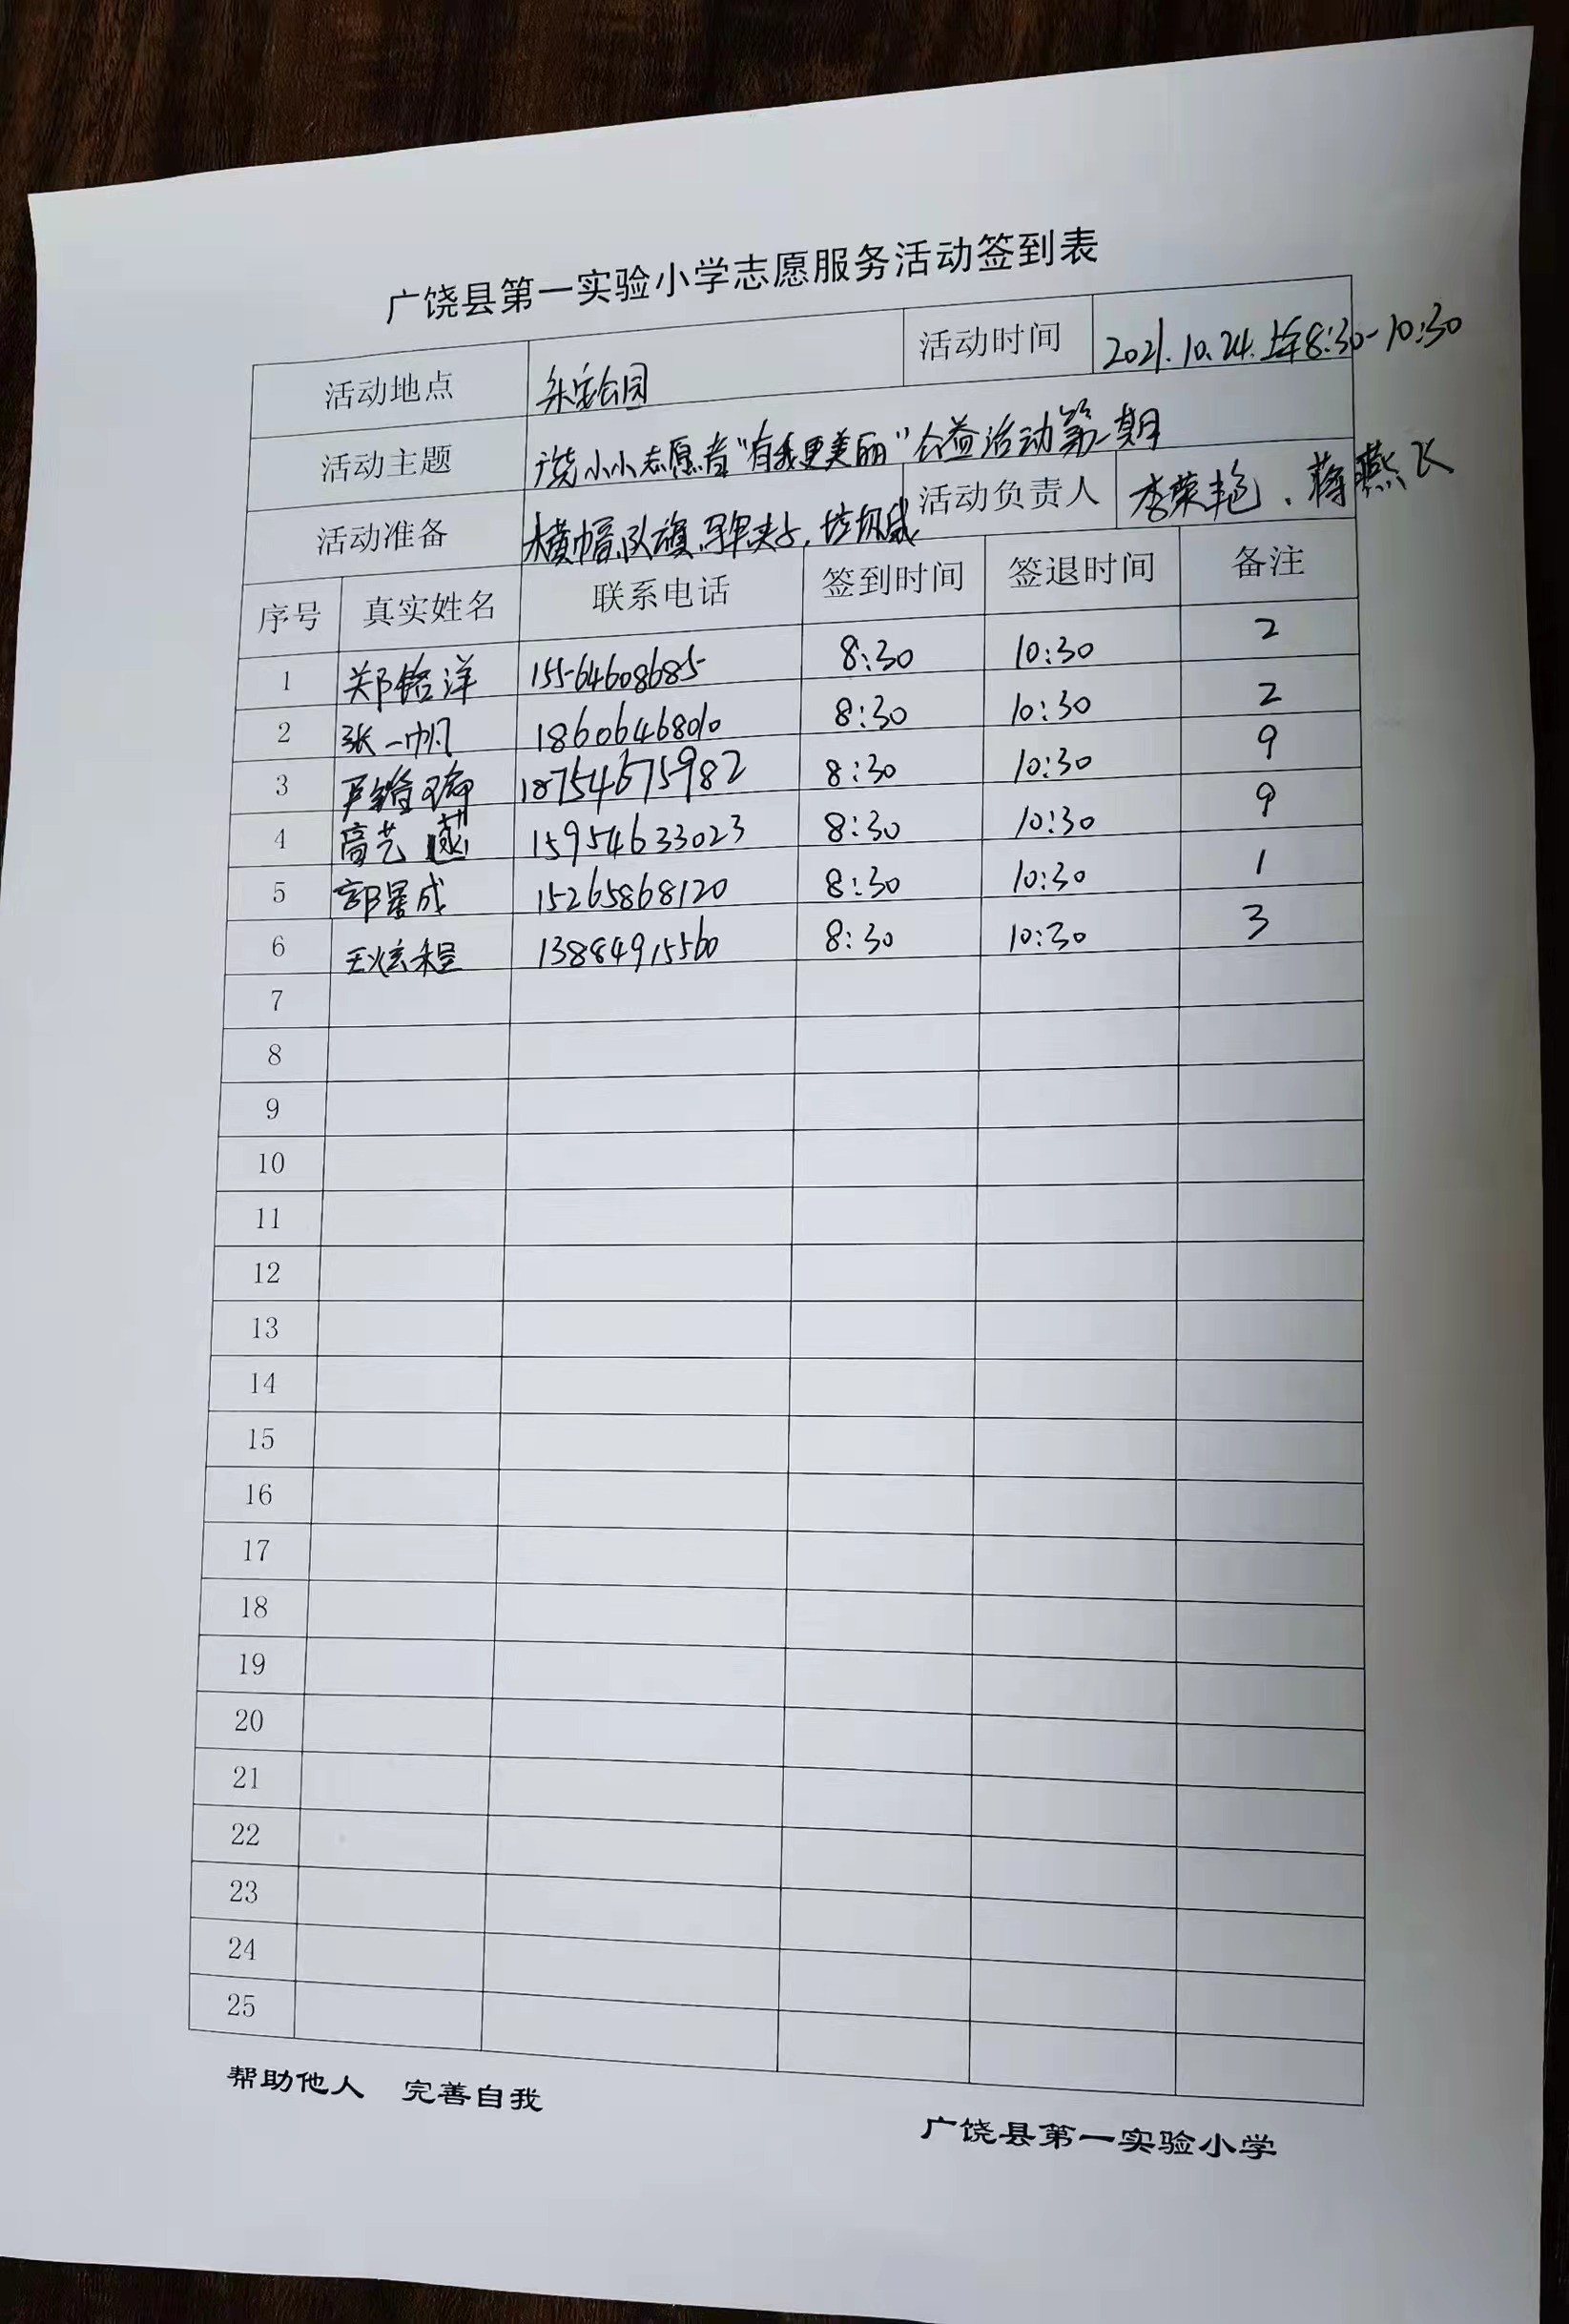 广饶县第一实验小学志愿服务活动签到表
活动地点 乐安公园 活动时间 2021.10.24.上午8:30-10:30
活动主题 广饶小小志愿者“有我更美丽”公益活动第一期
活动准备 横幅、队旗、 夹子、垃圾袋 活动负责人 李荣艳、蒋燕飞
序号 真实姓名 联系电话 签到时间 签退时间 备注
1 郑铭洋 15564608685 8:30 10:30 2
2 张一帆 18606468010 8:30 10:30 2
3 18754675982 8:30 10:30 9
4 高艺菡 15954633023 8:30 10:30 9
5 郭晏成 15265868120 8:30 10:30 1
6 王炫程 13884915560 8:30 10:30 3
7
8
9
10
11
12
13
14
15
16
17
18
19
20
21
22
23
24
25
帮助他人 完善自我
广饶县第一实验小学